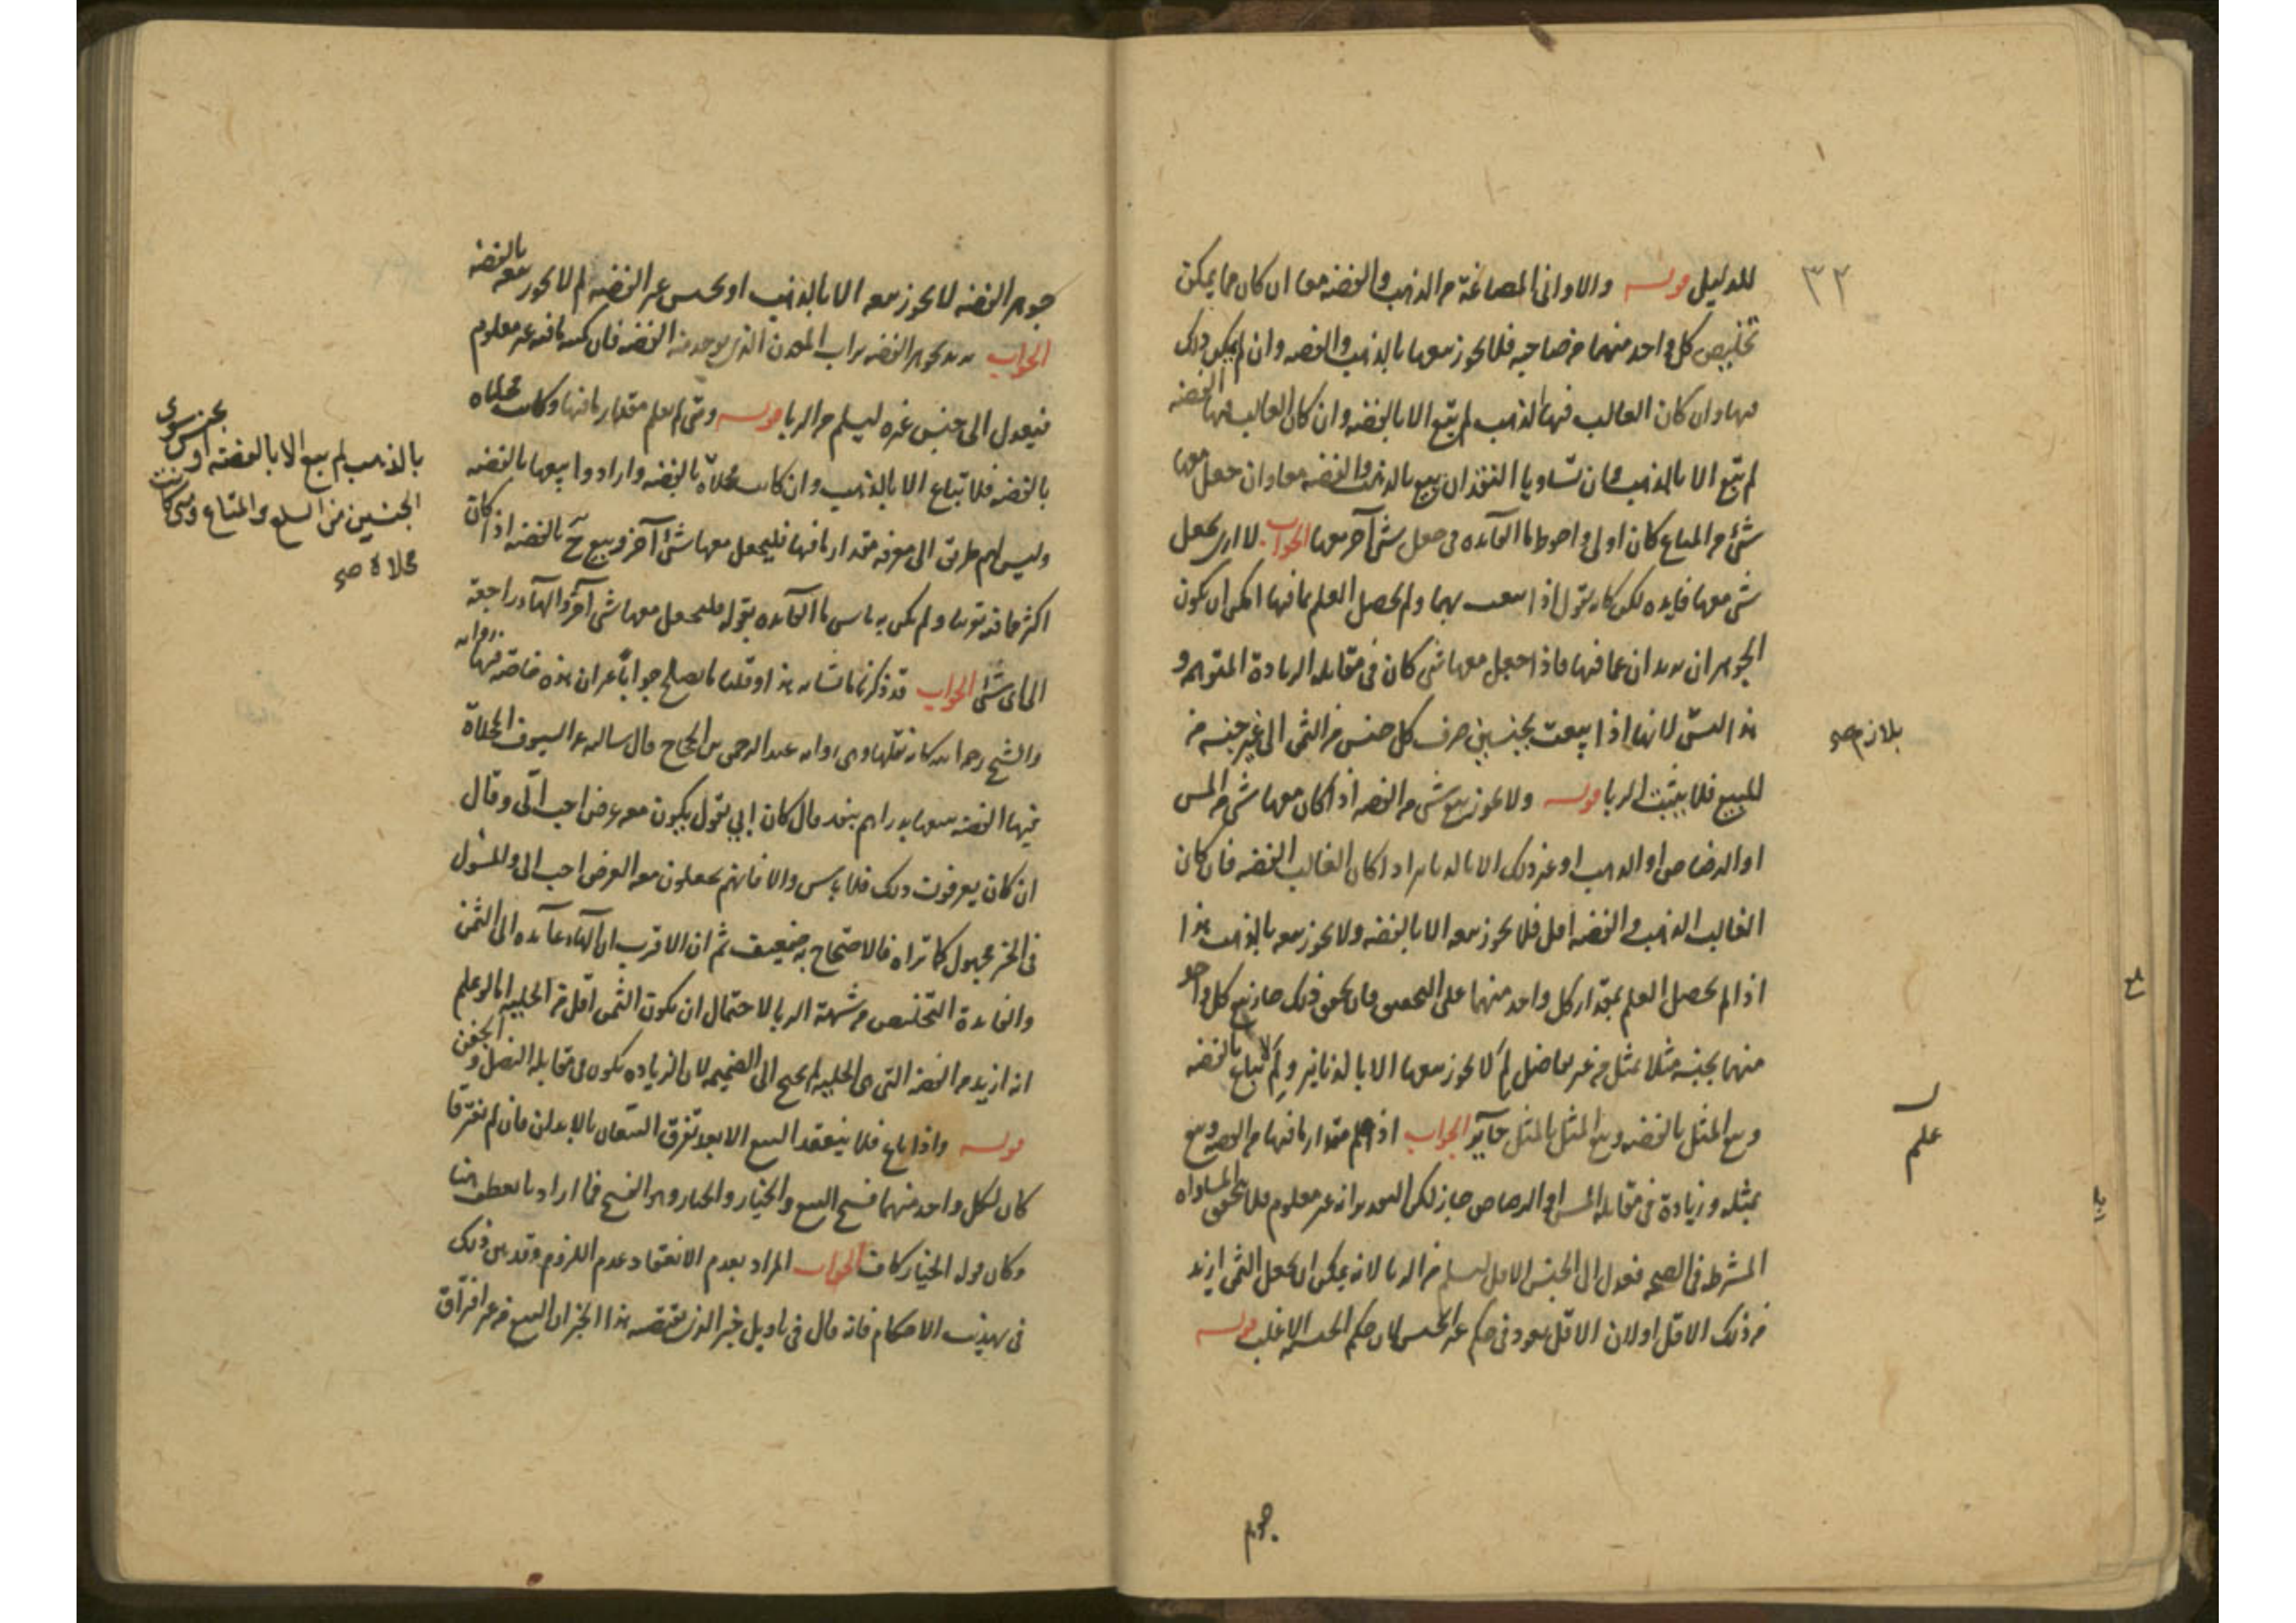 للدليل قوله والاواني المصاغة من الذهب والفضة معا ان كان مما يمكن
تخليص كل واحد منهما من صاحبه فلا يجوز بيعها بالذهب والفضه وان لم يمكن ذلك
فيها وان كان الغالب فيها الذهب لم يبع الا بالفضه وان كان الغالب فيها الفضه
لم يبع الا بالذهب وان تساويا النقدان بيع بالذهب والفضه معا وان جعل معها
شئ من المتاع كان اولى واحوط ما الفائده في جعل شئ آخر معها الجواب لا ارى بجعل
شئ معها فايده لكن كانه يقول اذا بيعت بهما ولم يحصل العلم بما فيها امكن ان يكون
الجوهران يزيدان عما فيها فاذا جعل معها شئ كان في مقابله الزيادة المتوهمه و
هذا ليس لانها اذا بيعت بجنسين صرف كل جنس من الثمن الى غير جنسه من
بلازم صح
للمبيع فلا يثبت الربا قوله ولا يجوز بيع شئ من الفضه اذا كان معها شئ من المس
او الرصاص او الذهب او غير ذلك الا بالدنانير اذا كان الغالب الفضه فان كان
الغالب الذهب والفضه اقل فلا يجوز بيعه الا بالفضه ولا يجوز بيعه بالذهب هذا
اذا لم يحصل العلم بمقدار كل واحد منهما على التحقيق فان تحقق ذلك جاز بيع كل واحد
منهما بجنسه مثلا بمثل من غير تفاضل لم لا يجوز بيعها الا بالدنانير ولم لا تباع بالفضه
وبيع المثل بالفضه وبيع المثل بالمثل جايز الجواب اذا علم مقدار ما فيها من الفضه وبيع
علم
بمثله وزيادة في مقابله المس او الرصاص جاز لكن التقدير انه غير معلوم فلا يتحقق المساواه
المشترطه في الصحه فعدل الى الجنس الاقل ليسلم من الربا لانه يمكن ان يجعل الثمن ازيد
من ذلك الاقل اولان الاقل يعود في حكم غير الجنس لان حكم الجنسيه للاغلب قوله
جوهر
جوهر الفضه لا يجوز بيعه الا بالذهب او بجنس غير الفضه لم لا يجوز بيعه بالفضه
الجواب يريد بجوهر الفضه تراب المعدن الذي يوجد منه الفضه فان كميه ما فيه غير معلوم
فيعدل الى جنس غيره ليسلم من الربا قوله ومتى لم يعلم مقدار ما فيها وكانت محلاه
بالفضه فلا تباع الا بالذهب وان كانت محلاة بالفضه وارادوا بيعها بالفضه
بالذهب لم يبع الا بالفضة او بجنس سوى
الجنسين من السلع والمتاع ومتى كانت
محلاة صح
وليس لهم طريق الى معرفه مقدار ما فيها فليجعل معها شئ آخر وبيع ح بالفضه اذا كان
اكثر مما فيه تقريبا ولم يكن به باس ما الفائده بقوله فليجعل معها شئ آخر والهاء راجعه
الى اى شئ الجواب قد ذكرنا ما يشابه هذا وقلنا ما يصلح جوابا غير ان هذه خاصة فيها روايه
والشيخ رحمه الله كانه نقلها وهى روايه عبد الرحمن بن الحجاج قال سالته عن السيوف المحلاة
فيها الفضه نبيعها بدراهم بنقد قال كان ابي يقول يكون معه عرض احب الى وقال
ان كان يعرفون ذلك فلا باس والا فانهم يجعلون معه العرض احب الى والمسؤل
في الخبر مجهول كما تراه فالاحتجاج به ضعيف ثم ان الاقرب ان الهاء عايده الى الثمن
والفايدة التخليص من شبهة الربا لاحتمال ان يكون الثمن اقل من الحليه اما لو علم
انه ازيد من الفضه التى هى الحليه لم يحتج الى الضميمه لان الزياده تكون في مقابله النصل والجفن
قوله واذا باع فلا ينعقد البيع الا بعد تفرق البيعان بالابدان فان لم يفترقا
كان لكل واحد منهما فسخ البيع والخيار والخيار هو الفسخ فما اراد بالعطف هنا
وكان قوله الخيار كاف الجواب المراد بعدم الانعقاد عدم اللزوم وقد بين ذلك
في تهذيب الاحكام فانه قال في تاويل خبر الذي يتضمنه هذا الخبر ان البيع من غير افتراق